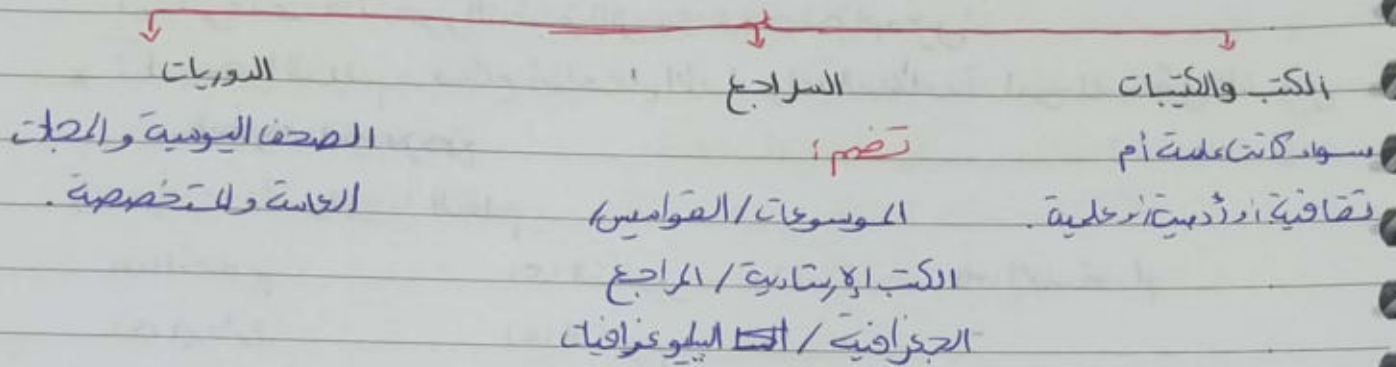 الكتب والكتيبات
سواء كانت علمية أم
ثقافية أو أدبية أو علمية .
المراجع
تضم :
الموسوعات / القواميس /
الكتب الإرشادية / المراجع
الجغرافية / البيليوغرافيات
الدوريات
الصحف اليومية والمجلات
العامة والمتخصصة .